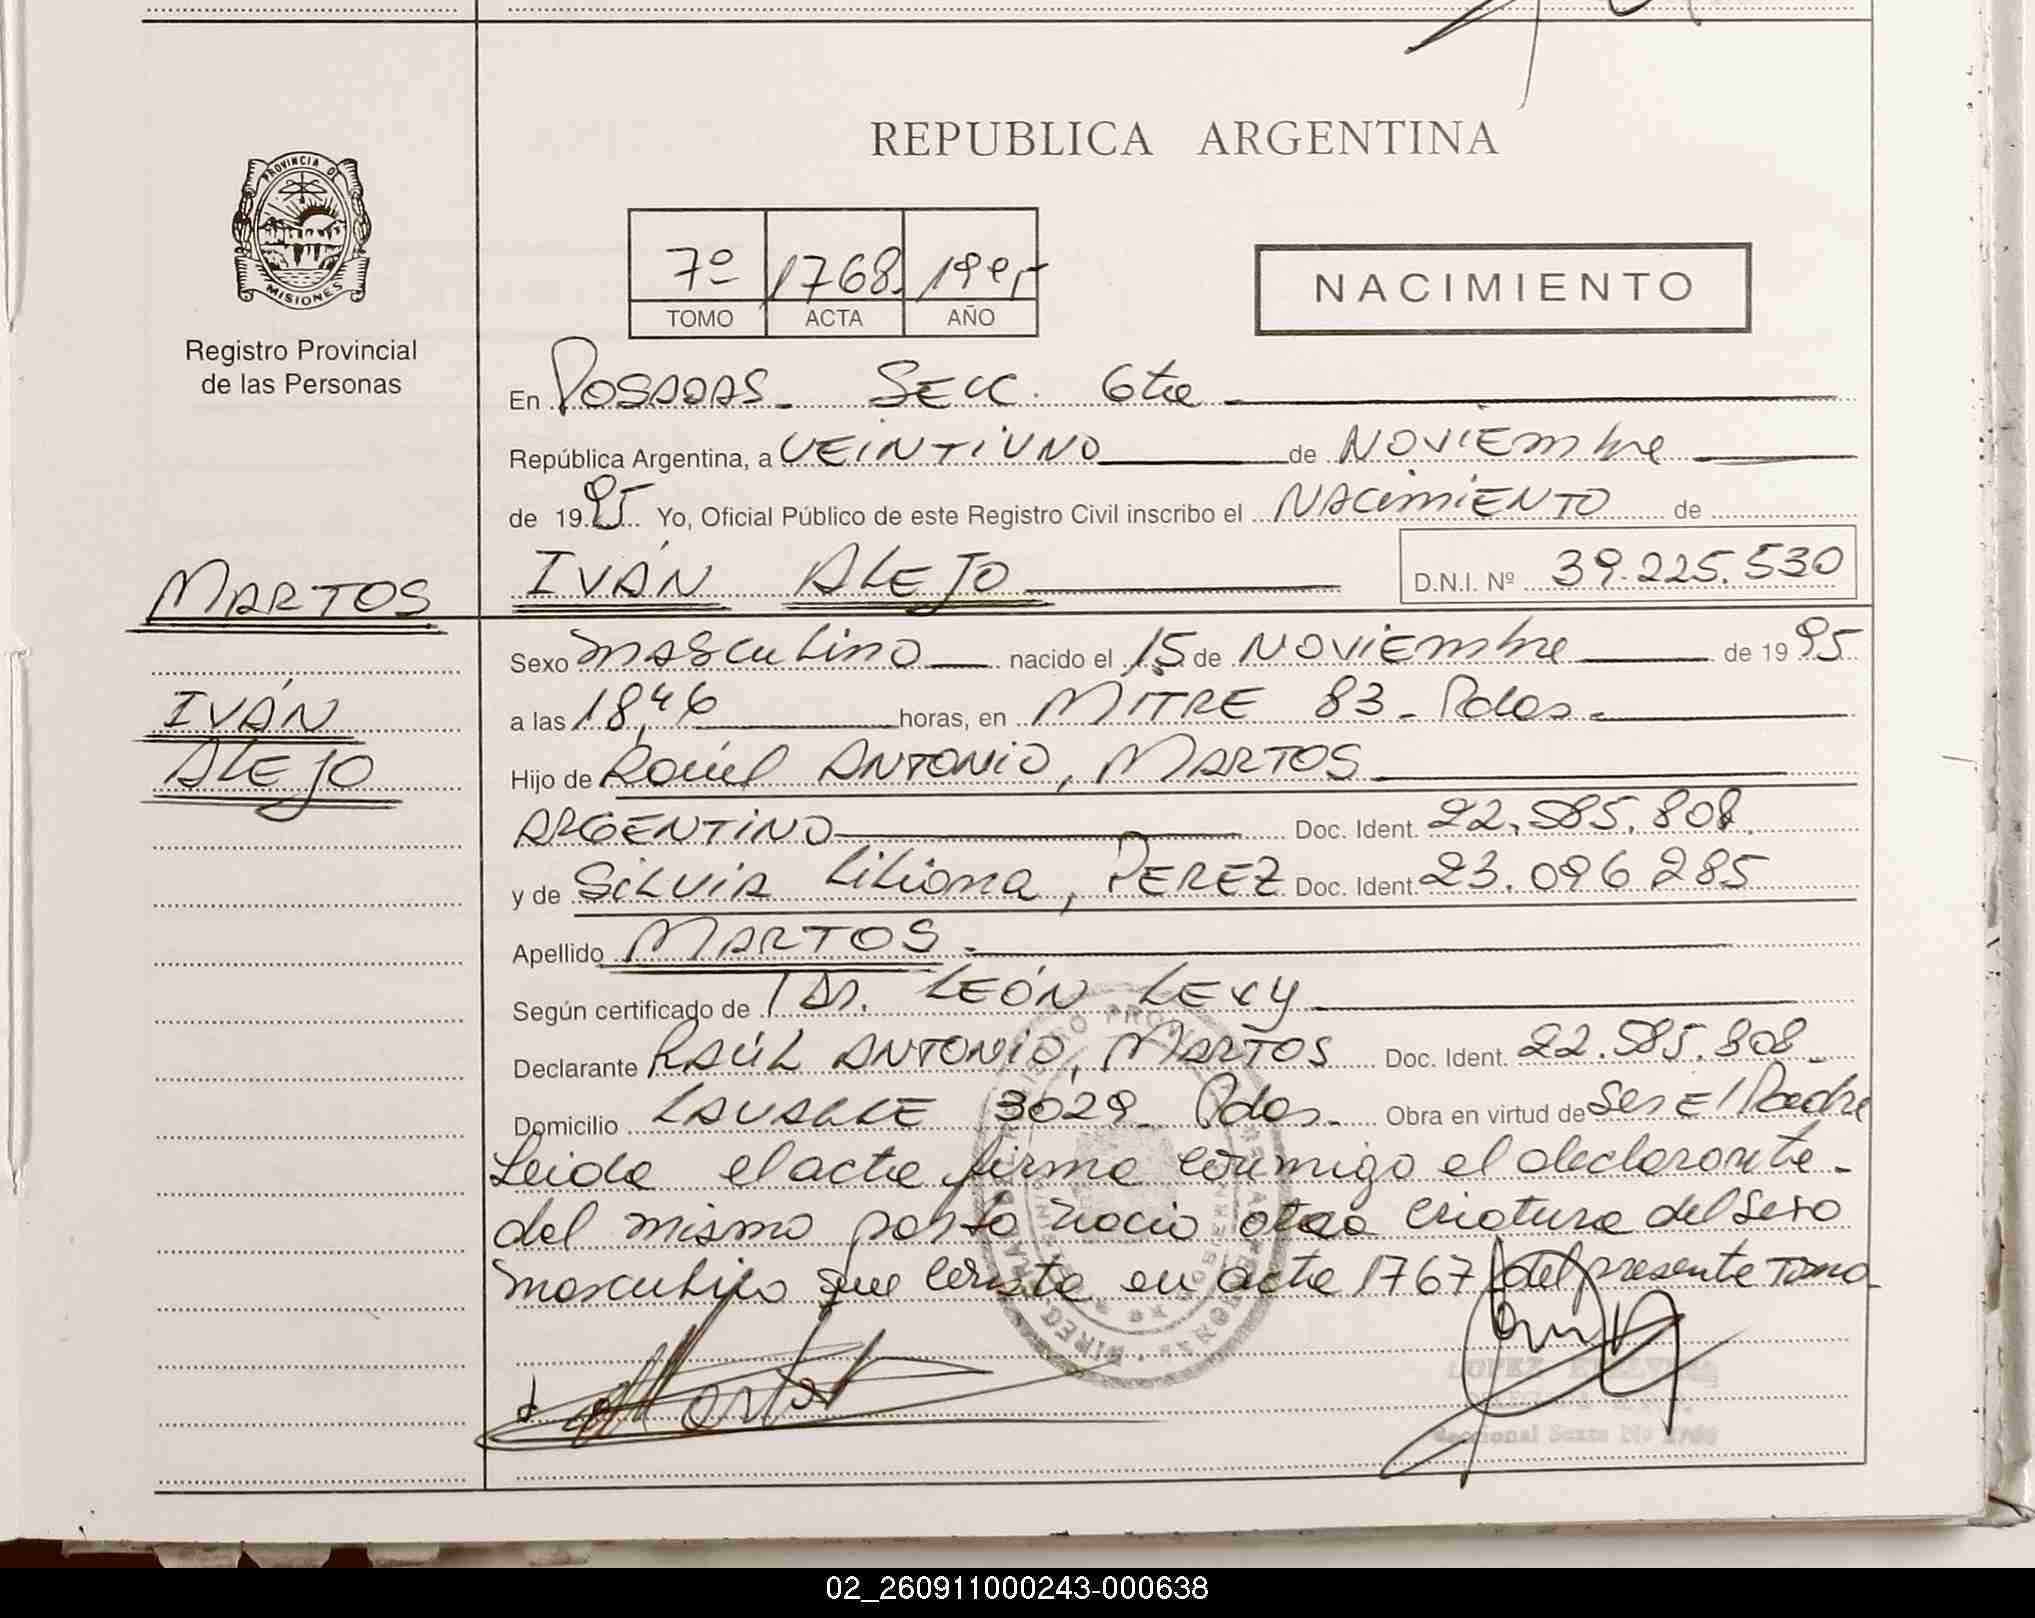 REPUBLICA ARGENTINA
PROVINCIA DE
MISIONES
Registro Provincial
de las Personas
7º 1768 1995
TOMO ACTA AÑO
NACIMIENTO
En POSADAS. SECC. 6ta
República Argentina, a VEINTIUNO de NOVIEMbre
de 1995 Yo, Oficial Público de este Registro Civil inscribo el NACimiENTO de
IVÁN ALEJO D.N.I. Nº 39.225.530
MARTOS
IVÁN
ALEJO
Sexo MASCuLiNO nacido el 15 de NOViEmbre de 1995
a las 18,46 horas, en MITRE 83 - Pdas.
Hijo de Raúl ANTONiO, MARTOS
ARGENTiNO Doc. Ident. 22.585.808
y de SiLViA LiLiana, PEREZ Doc. Ident. 23.096.285
Apellido MARTOS.
Según certificado de Dr. LEÓN LEVY
Declarante RAÚL ANTONiO, MARTOS Doc. Ident. 22.585.808
Domicilio LAVALLE 3029 Pdas. Obra en virtud de Ser El Padre
Leida el acta firma conmigo el declarante.
del mismo parto nacio otra criatura del sexo
masculino que consta en acta 1767 del presente Tomo
LOPEZ
Seccional Sexta
02_260911000243-000638